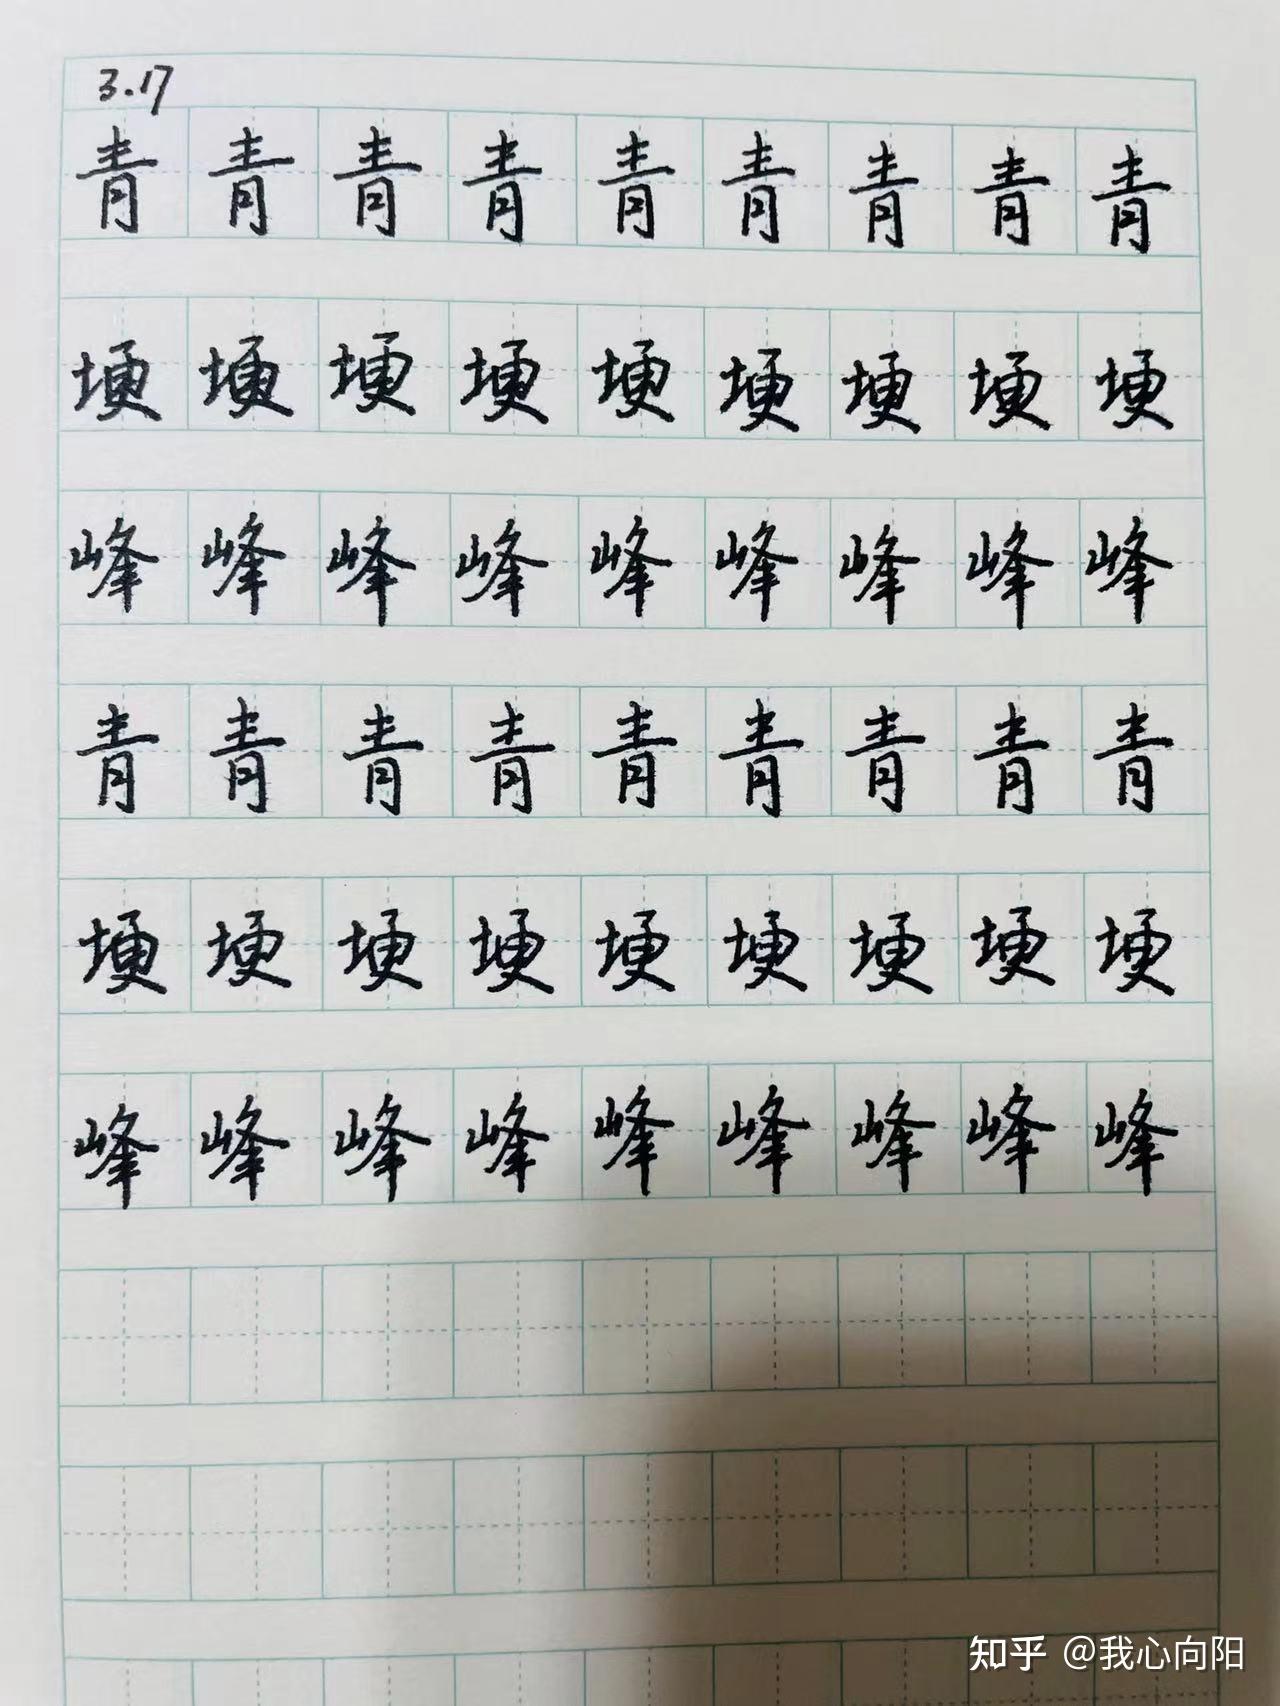 3.17
青青青青青青青青青
埂埂埂埂埂埂埂埂埂
峰峰峰峰峰峰峰峰峰
青青青青青青青青青
埂埂埂埂埂埂埂埂埂
峰峰峰峰峰峰峰峰峰
知乎 @我心向阳